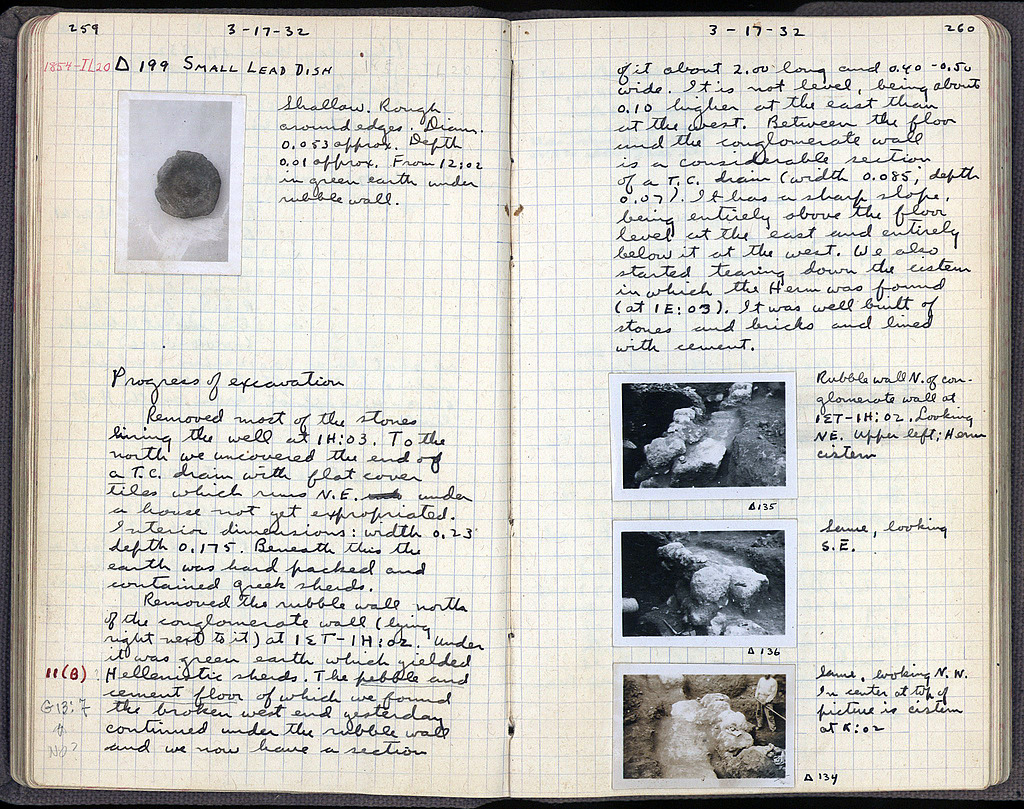 259
3-17-32
1854-IL20 Δ 199 SMALL LEAD DISH
Shallow. Rough
around edges. Diam.
0.053 approx. Depth
0.01 approx. From 12:02
in green earth under
rubble wall.
Progress of excavation
Removed most of the stones
lining the well at 1H:03. To the
north we uncovered the end of
a T.C. drain with flat cover
tiles which runs N.E. under
a house not yet expropriated.
Interior dimensions: width 0.23
depth 0.175. Beneath this the
earth was hard packed and
contained greek sherds.
Removed the rubble wall north
of the conglomerate wall (lying
right next to it) at 1ΣT-1H:02. Under
it was green earth which yielded
11(B) Hellenistic sherds. The pebble and
cement floor of which we found
G13:7 the broken west end yesterday
continued under the rubble wall
No? and we now have a section
3-17-32
260
of it about 2.00 long and 0.40-0.50
wide. It is not level, being about
0.10 higher at the east than
at the west. Between the floor
and the conglomerate wall
is a considerable section
of a T.C. drain (width 0.085; depth
0.07). It has a sharp slope,
being entirely above the floor
level at the east and entirely
below it at the west. We also
started tearing down the cistern
in which the Herm was found
(at 1E:03). It was well built of
stones and bricks and lined
with cement.
Rubble wall N. of con-
glomerate wall at
1ΣT-1H:02. Looking
NE. Upper left; Herm
cistern
Δ135
Same, looking
S.E.
Δ136
Same, looking N.W.
In center at top of
picture is cistern
at K:02
Δ134